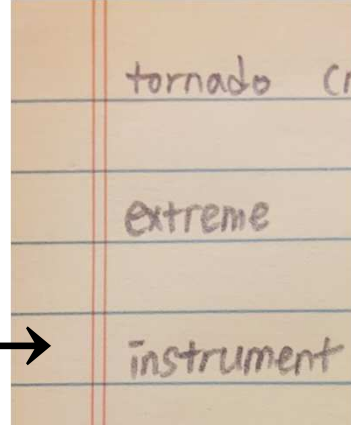 tornado
extreme
instrument